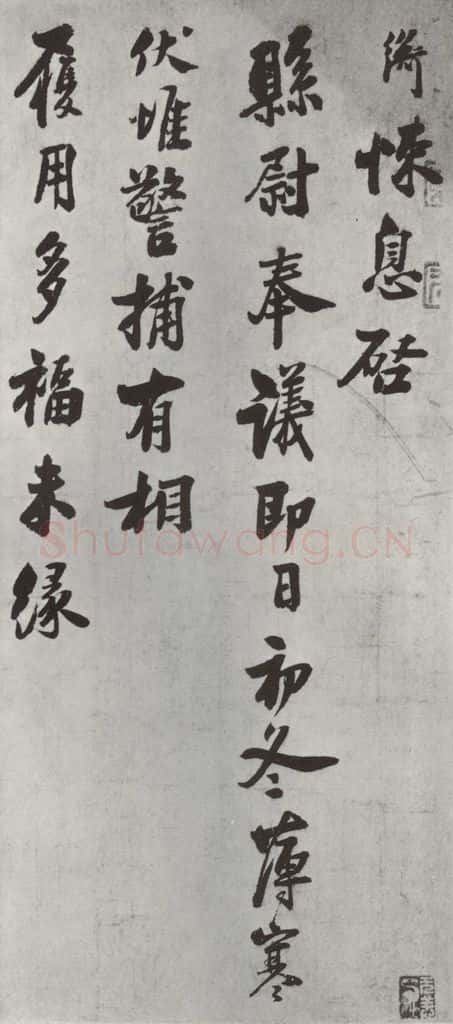 悚息啓
縣尉奉議即日初冬薄寒
伏惟警捕有相
履用多福未緣
Shufawang.CN